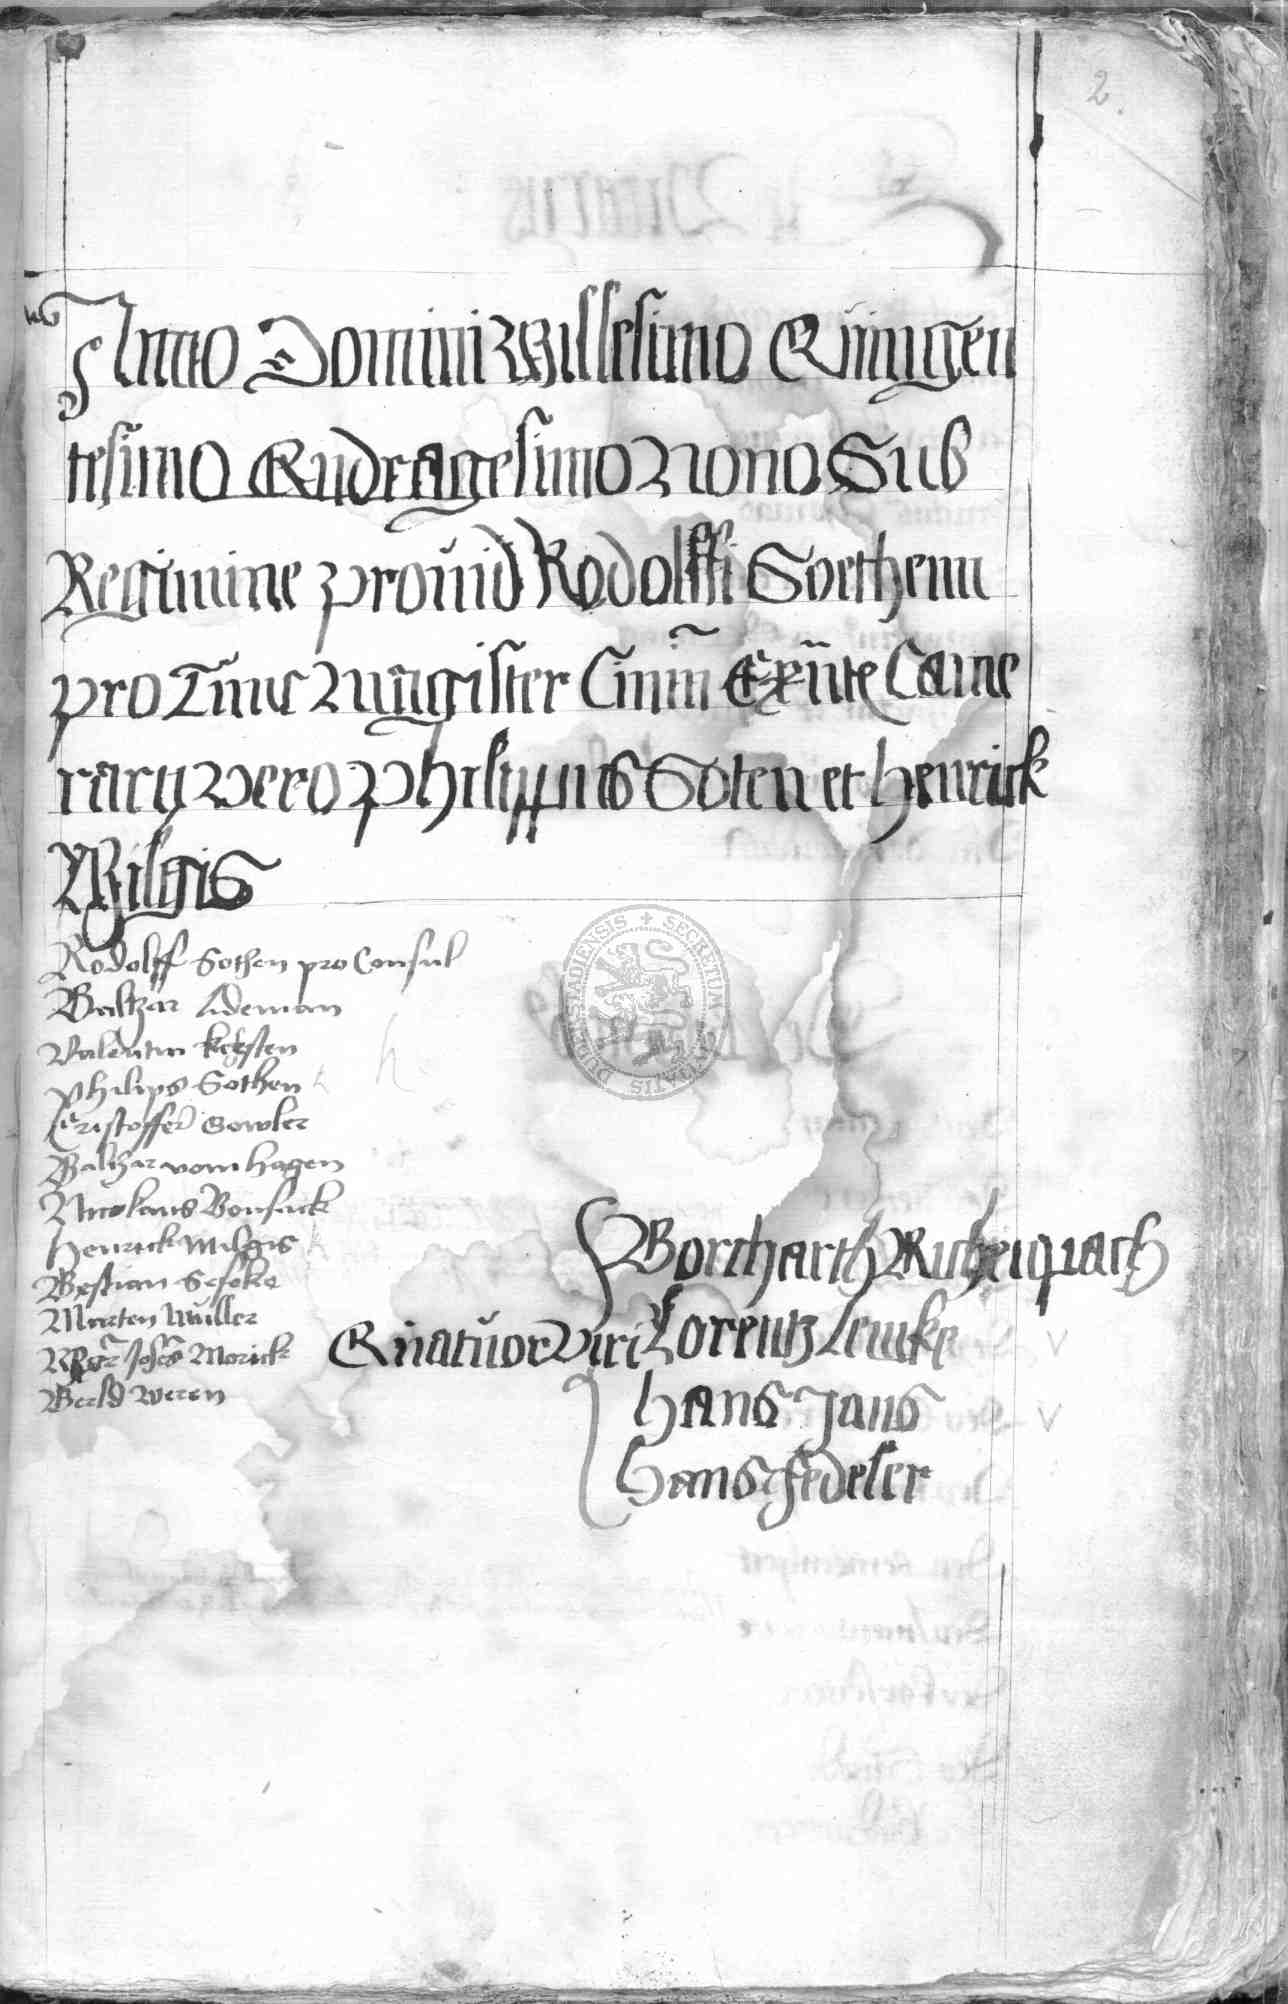 2.
Anno Domini Millesimo Quingen
tesimo Quadragesimo Nono Sub
Regimine provid Rodolffi Soethenn
pro Tunc Magister Civiũ Exñte Came
rarij vero Philippus Soten et Henrick
Milgis
Rodolff Sothen pro Consul
Baltzar Ademan
Valentin kersten
Philips Sothen
Cristoffer Gowler
Baltzar vom Hagen
Nicolaus Bonsack
Henrick Milgis
Bestian Seseke
Marten Müller
Morick
Berld Weren
Quatuor Viri
Borchart Richeiquach
Lorentz Lemke
Hans Jans
Hans Fedeler
SECRETUM DUDERSTADIENSIS